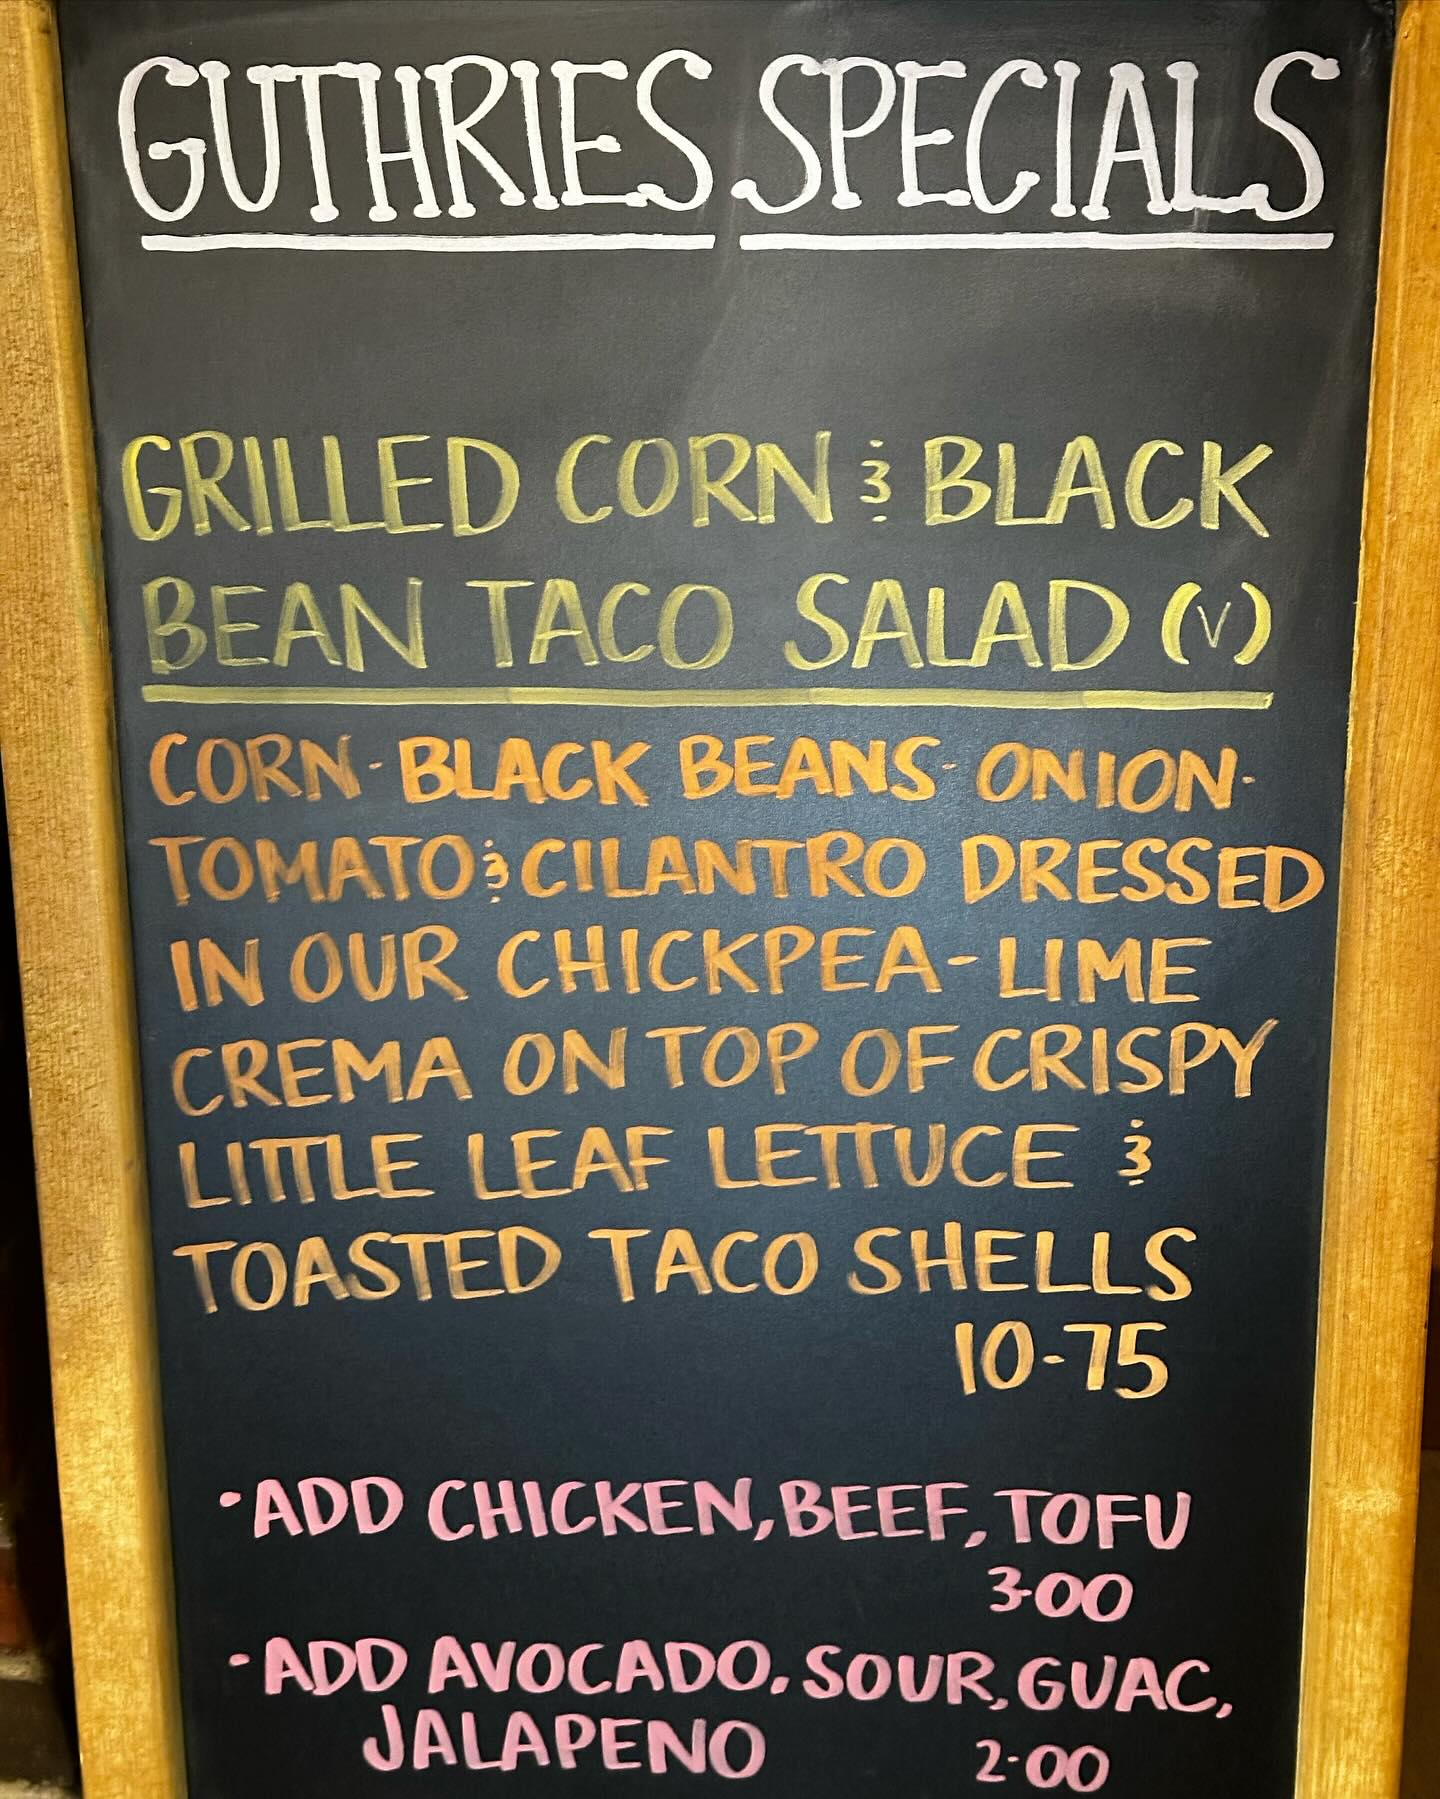 GUTHRIES SPECIALS
GRILLED CORN & BLACK
BEAN TACO SALAD (V)
CORN - BLACK BEANS - ONION -
TOMATO & CILANTRO DRESSED
IN OUR CHICKPEA - LIME
CREMA ON TOP OF CRISPY
LITTLE LEAF LETTUCE &
TOASTED TACO SHELLS
10-75
· ADD CHICKEN, BEEF, TOFU
3-00
· ADD AVOCADO, SOUR, GUAC,
JALAPENO 2-00